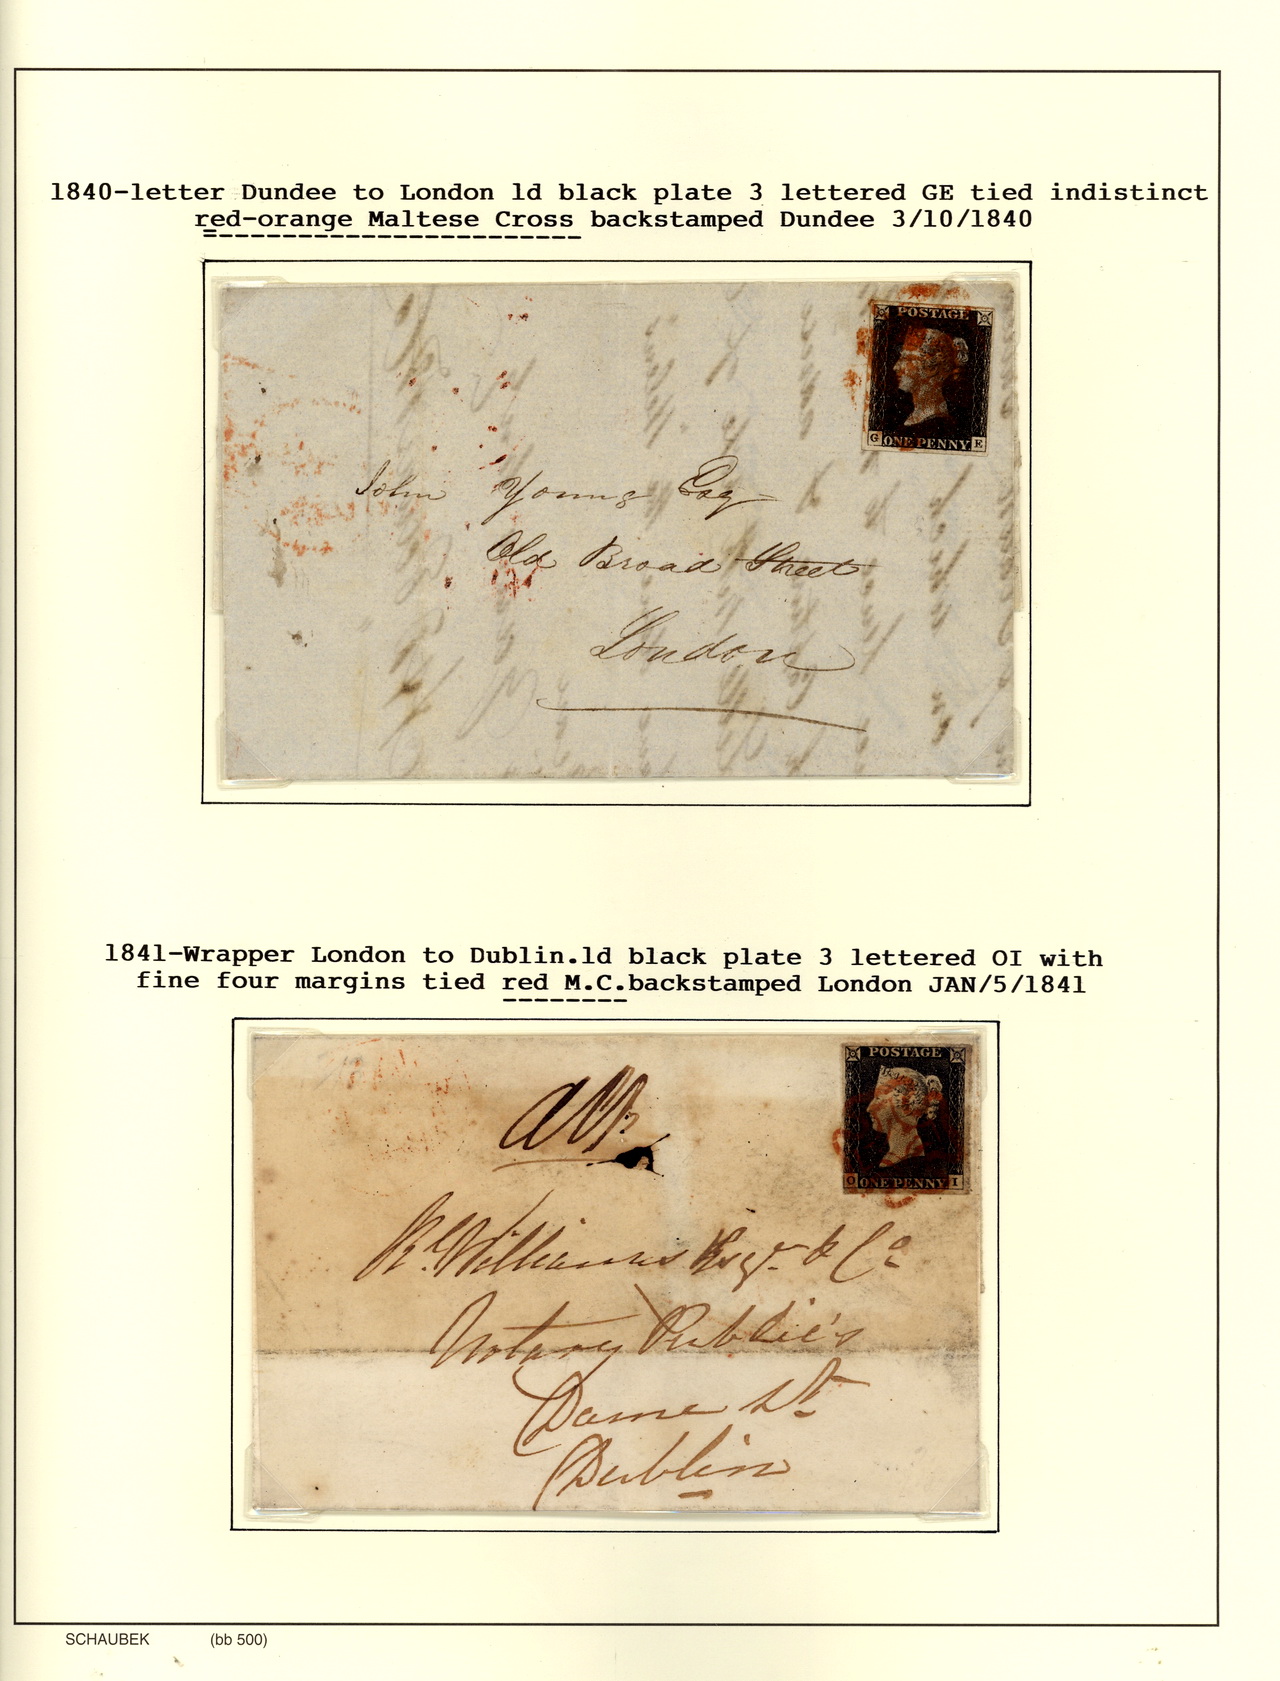 1840-letter Dundee to London 1d black plate 3 lettered GE tied indistinct
red-orange Maltese Cross backstamped Dundee 3/10/1840
POSTAGE
G ONE PENNY E
John Young Esq
Old Broad Street
London
1841-Wrapper London to Dublin.1d black plate 3 lettered OI with
fine four margins tied red M.C.backstamped London JAN/5/1841
POSTAGE
O ONE PENNY I
Williams Esqr & Co
Notary Public's
Dame St
Dublin
SCHAUBEK (bb 500)